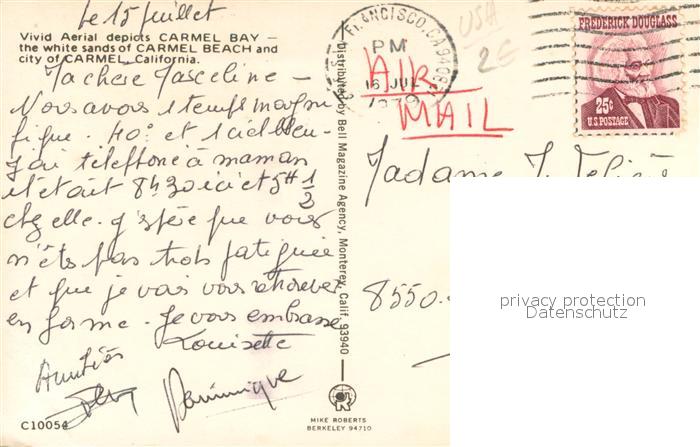 Le 15 juillet
Vivid Aerial depicts CARMEL BAY —
the white sands of CARMEL BEACH and
city of CARMEL, California.
Ma chère Marceline —
Nous avons 1 temps magni
fique. 40° et 1 ciel bleu-
J'ai téléphoné à maman
il était 8h30 ici et 5H 1/2
chez elle. J'espère que vous
n'êtes pas trop fatiguée
et que je vais vous retrouver
en forme. Je vous embrasse
Louisette
Amitiés
Dominique
C10054
Distributed by Bell Magazine Agency, Monterey, Calif. 93940 —
MIKE ROBERTS
BERKELEY 94710
FRANCISCO, CA
PM
16 JUL
USA
2€
AIR
MAIL
FREDERICK DOUGLASS
25¢
U.S. POSTAGE
Madame J.
8550
privacy protection
Datenschutz